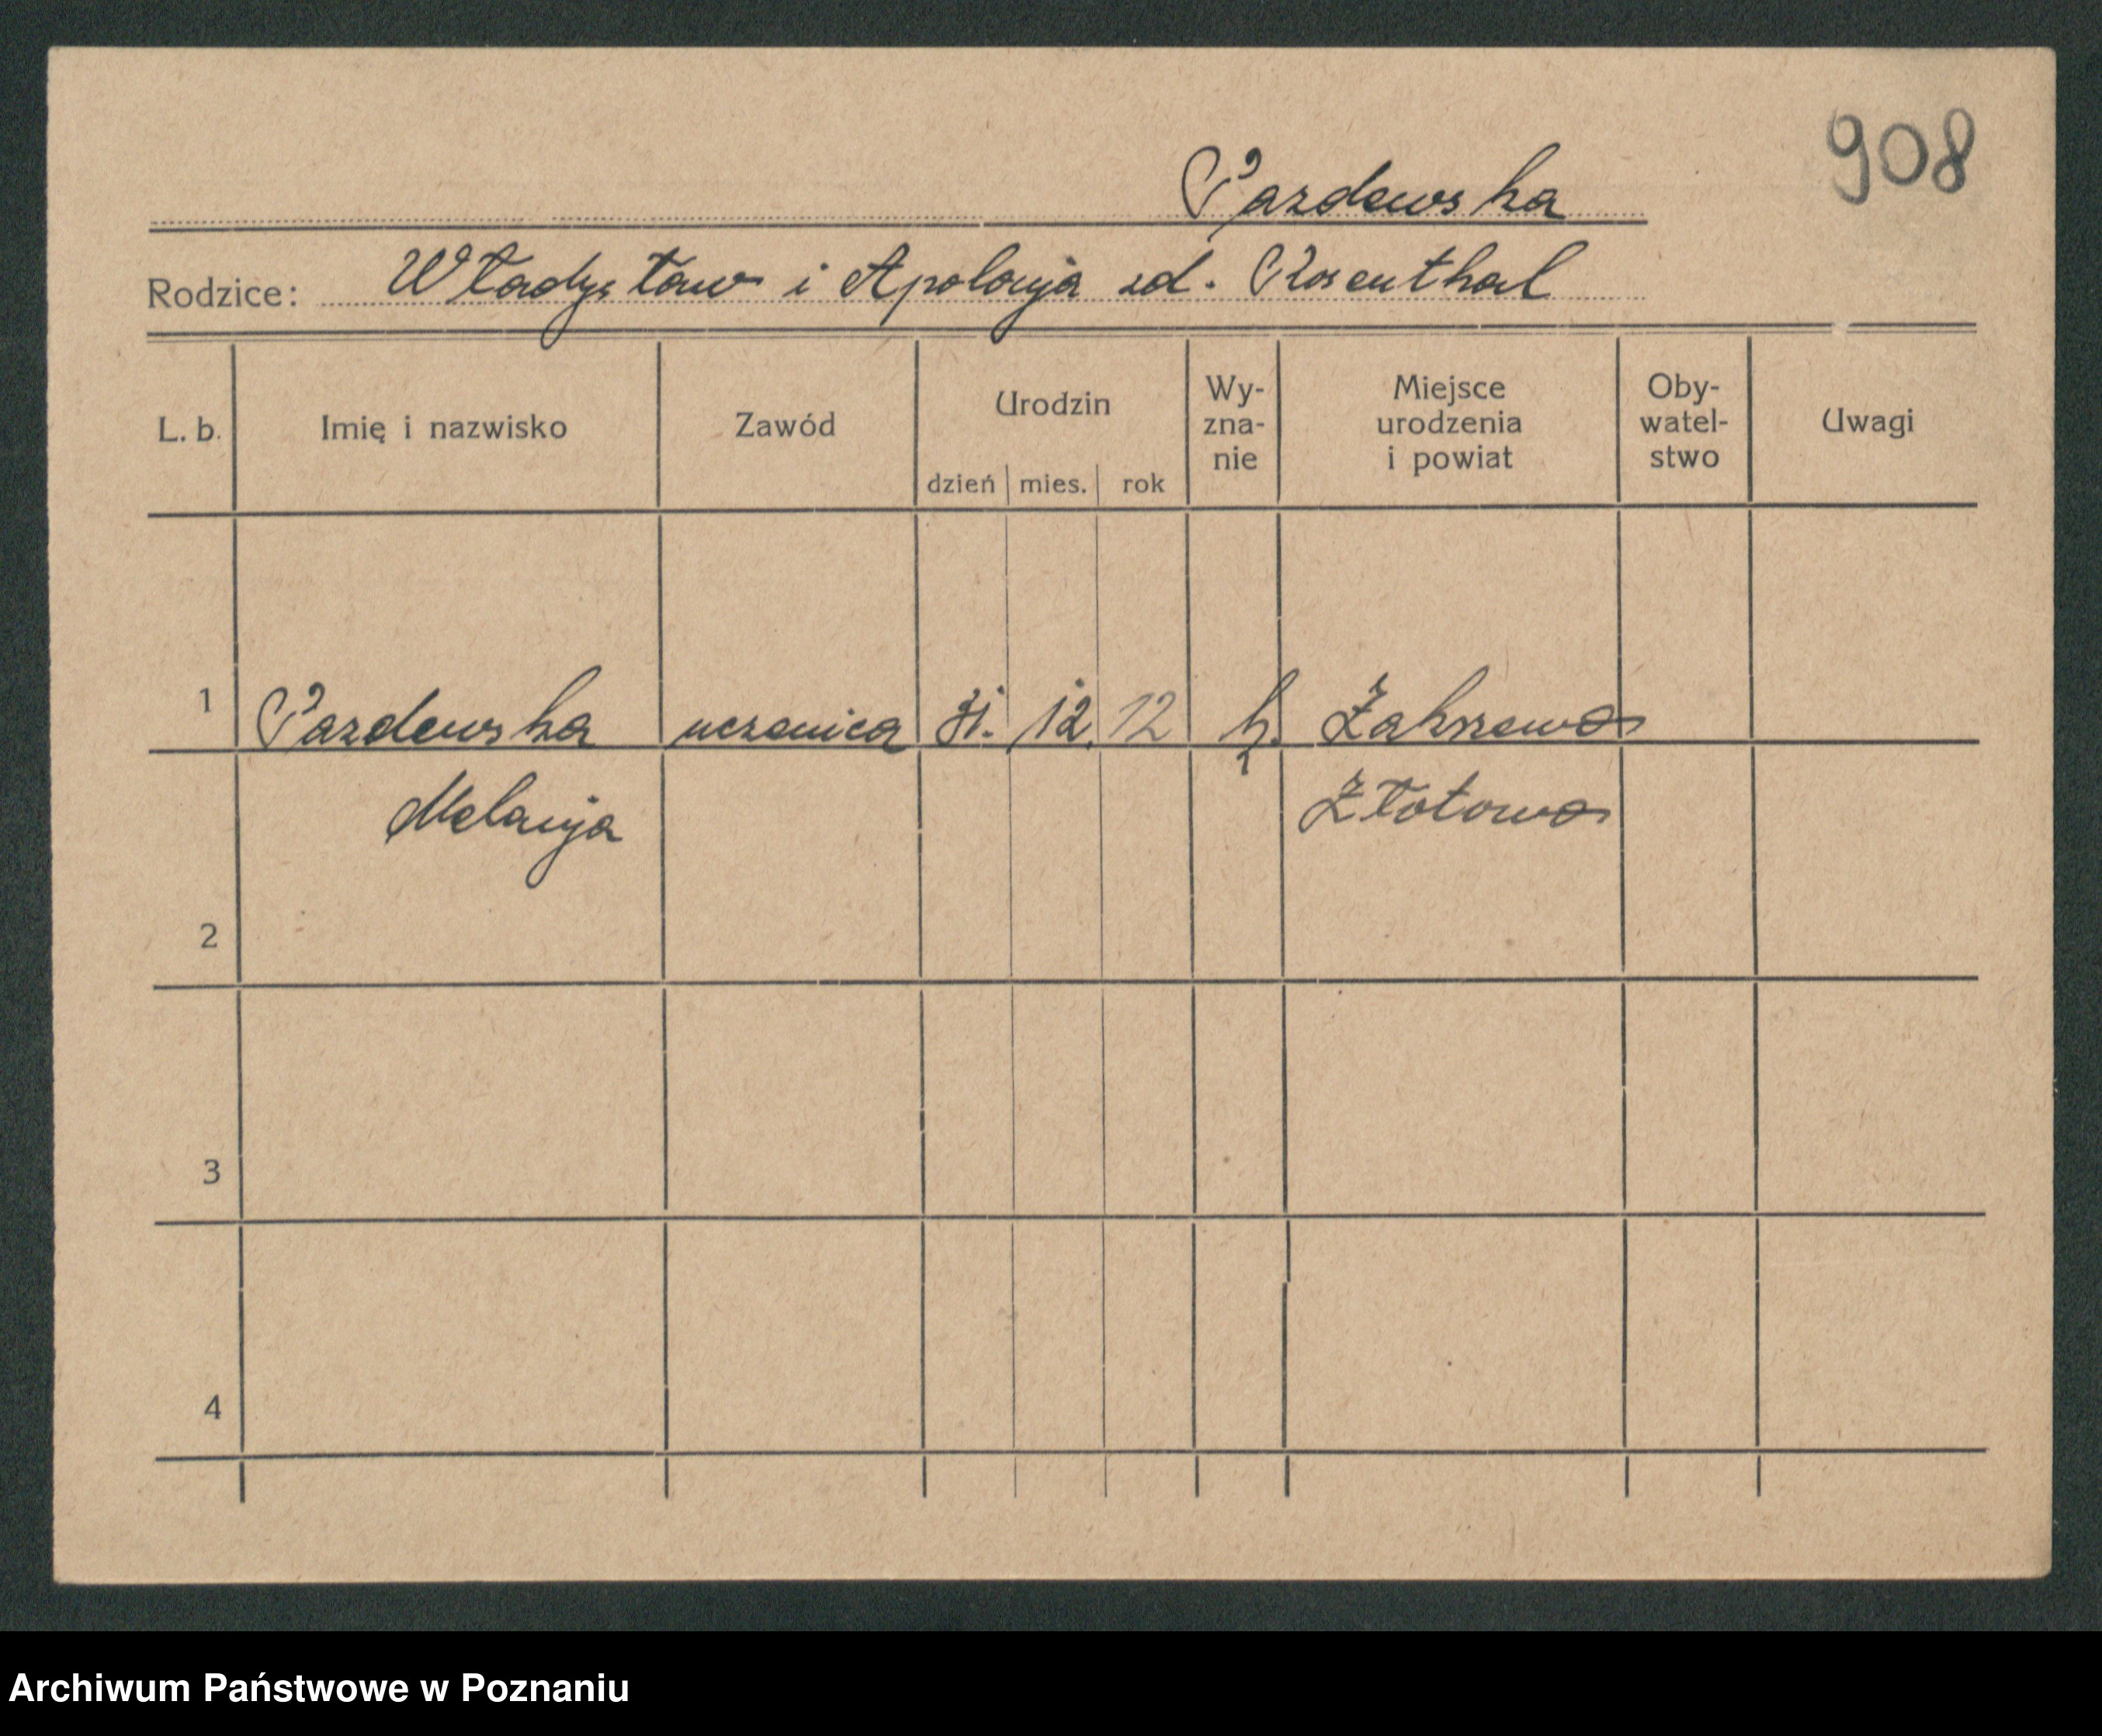 908
Pazdewska
Rodzice: Władysław i Apolonja zd. Rosenthal
L. b. Imię i nazwisko Zawód Urodzin dzień mies. rok Wy-zna-nie Miejsce urodzenia i powiat Oby-watel-stwo Uwagi
1 Pazdewska uczenica 31. 12. 12 Zakrzewo
Melanja Złotowo
2
3
4
Archiwum Państwowe w Poznaniu